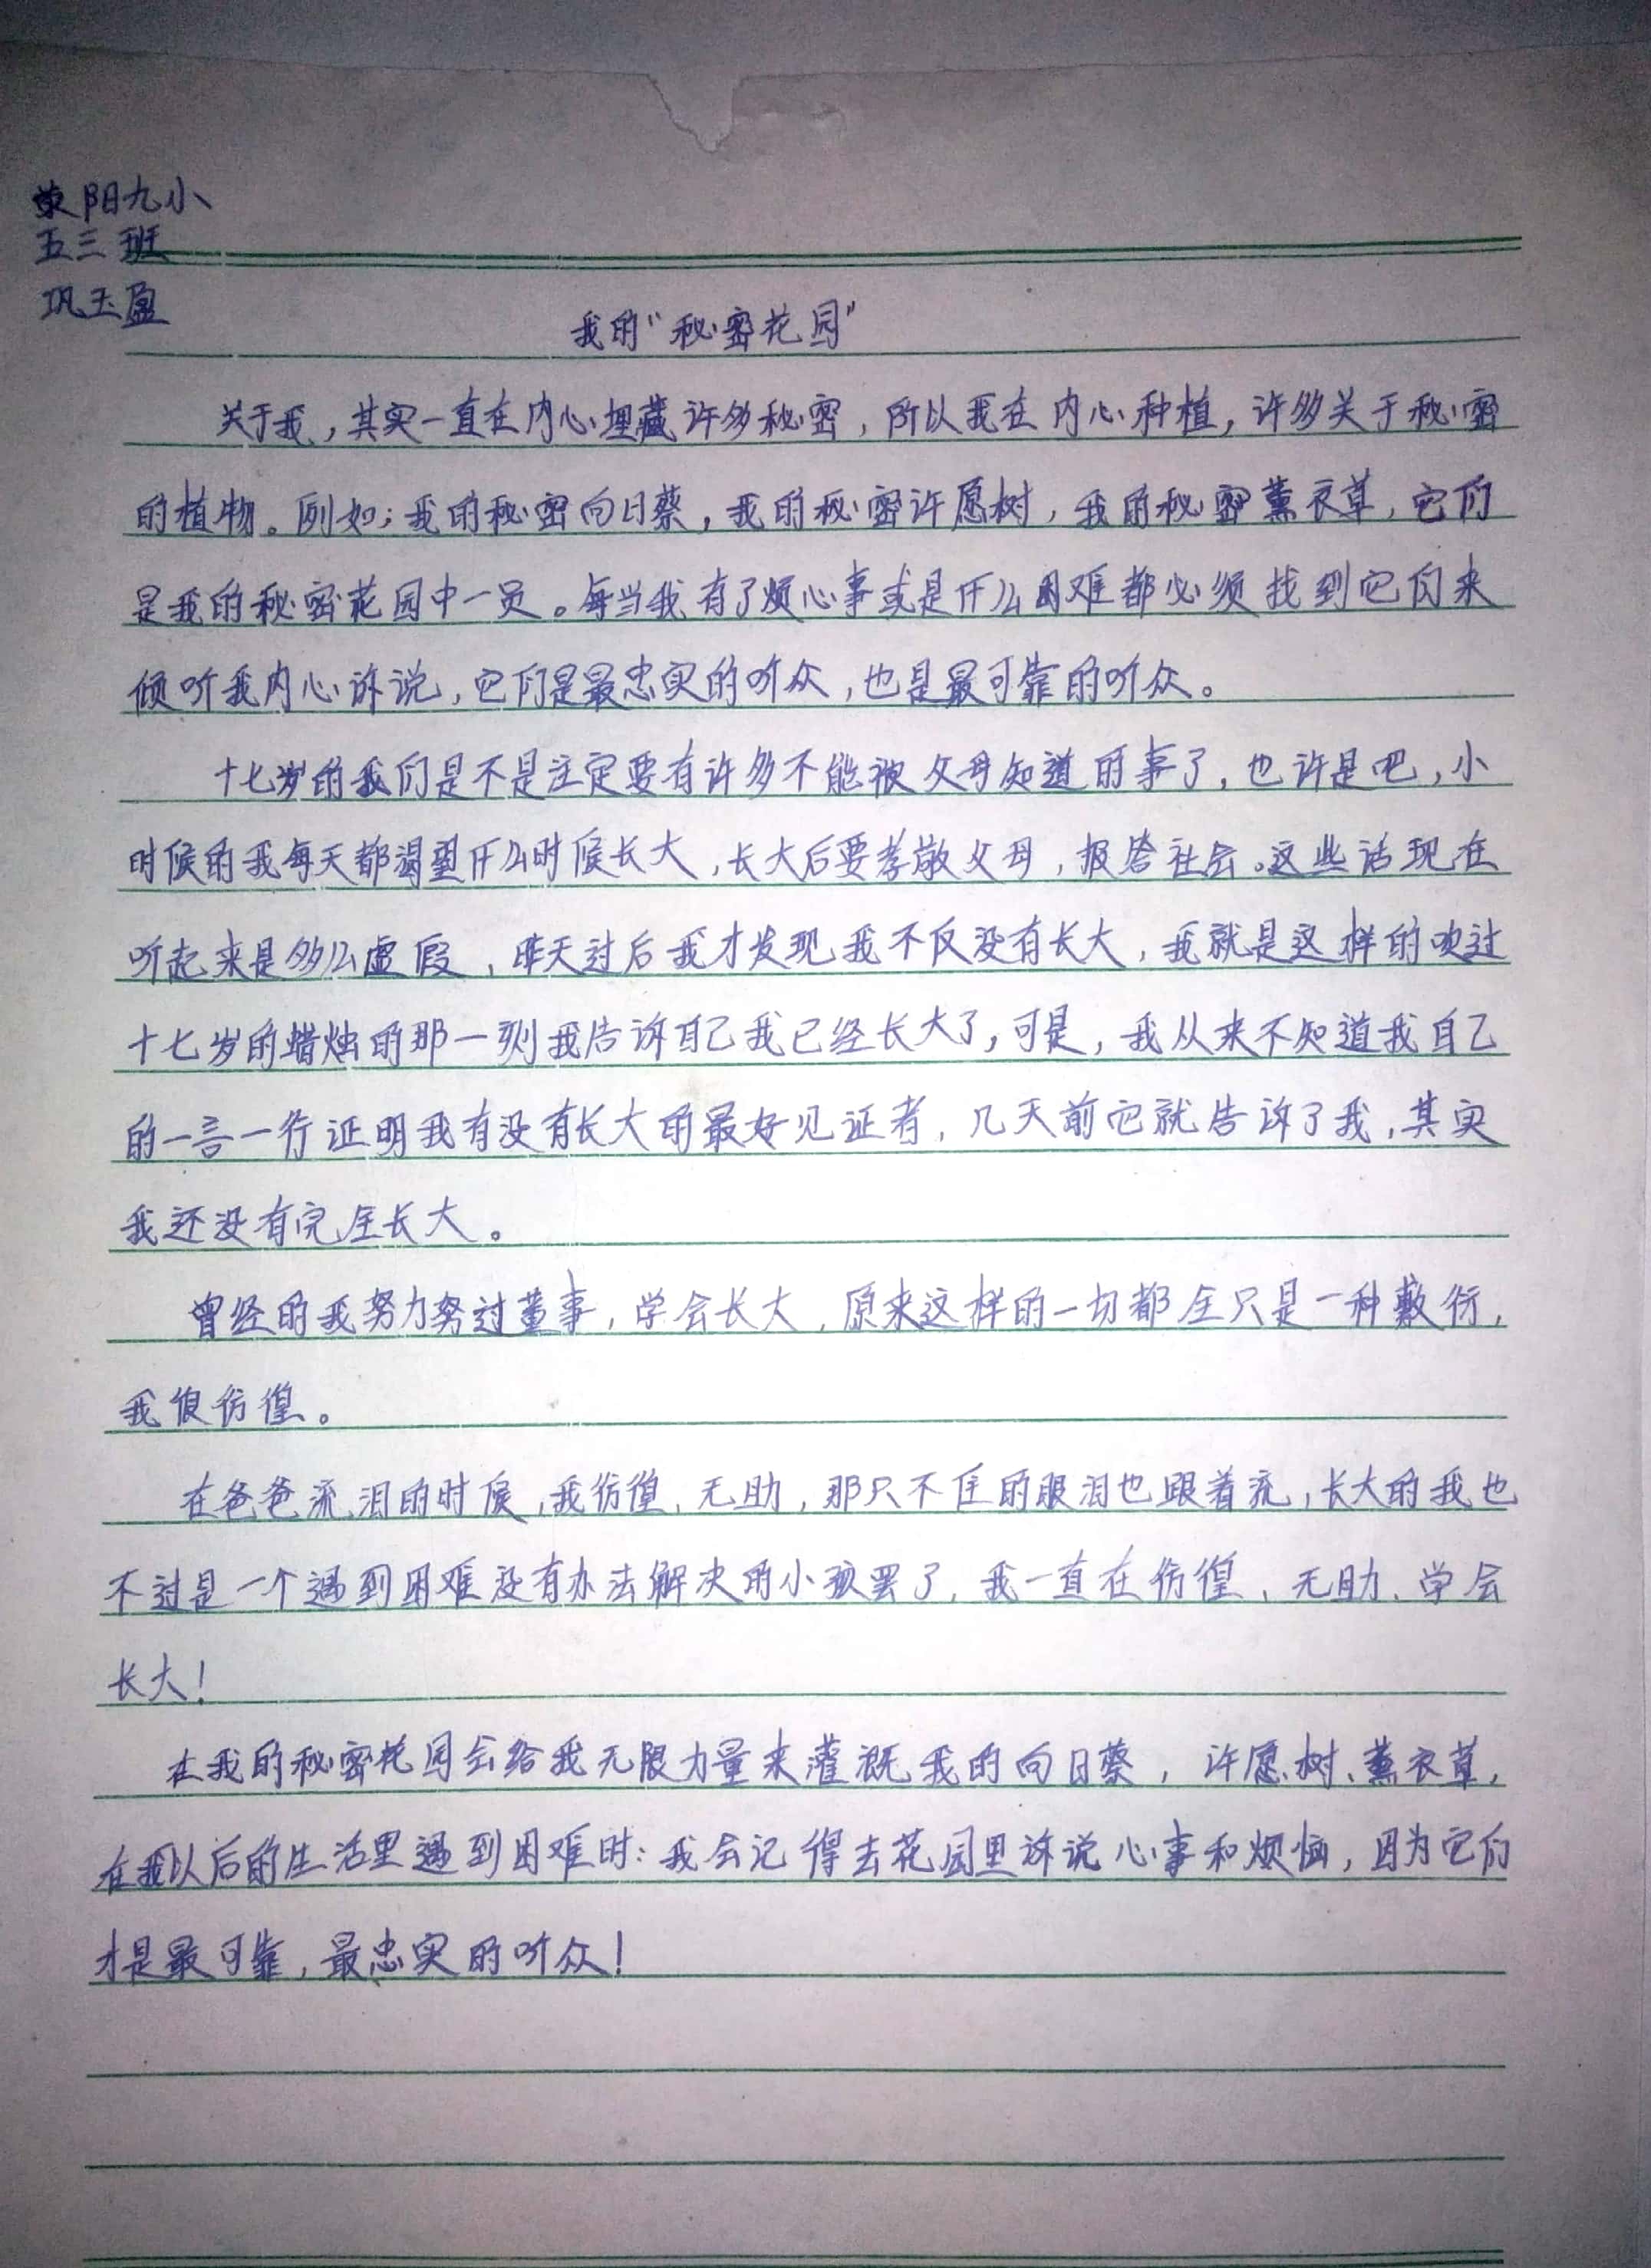 荥阳九小
五三班
巩玉盈
我的“秘密花园”
关于我，其实一直在内心埋藏许多秘密，所以我在内心种植，许多关于秘密
的植物。例如；我的秘密向日葵，我的秘密许愿树，我的秘密薰衣草，它们
是我的秘密花园中一员。每当我有了烦心事或是什么困难都必须找到它们来
倾听我内心诉说，它们是最忠实的听众，也是最可靠的听众。
十七岁的我们是不是注定要有许多不能被父母知道的事了，也许是吧，小
时候的我每天都渴望什么时候长大，长大后要孝敬父母，报答社会。这些话现在
听起来是多么虚假，昨天过后我才发现我不仅没有长大，我就是这样的吹过
十七岁的蜡烛的那一刻我告诉自己我已经长大了，可是，我从来不知道我自己
的一言一行证明我有没有长大的最好见证者，几天前它就告诉了我，其实
我还没有完全长大。
曾经的我努力努过董事，学会长大，原来这样的一切都全只是一种敷衍，
我很彷徨。
在爸爸流泪的时候，我彷徨、无助，那只不住的眼泪也跟着流，长大的我也
不过是一个遇到困难没有办法解决的小孩罢了，我一直在彷徨、无助、学会
长大！
在我的秘密花园会给我无限力量来灌溉我的向日葵，许愿树、薰衣草，
在我以后的生活里遇到困难时：我会记得去花园里诉说心事和烦恼，因为它们
才是最可靠，最忠实的听众！